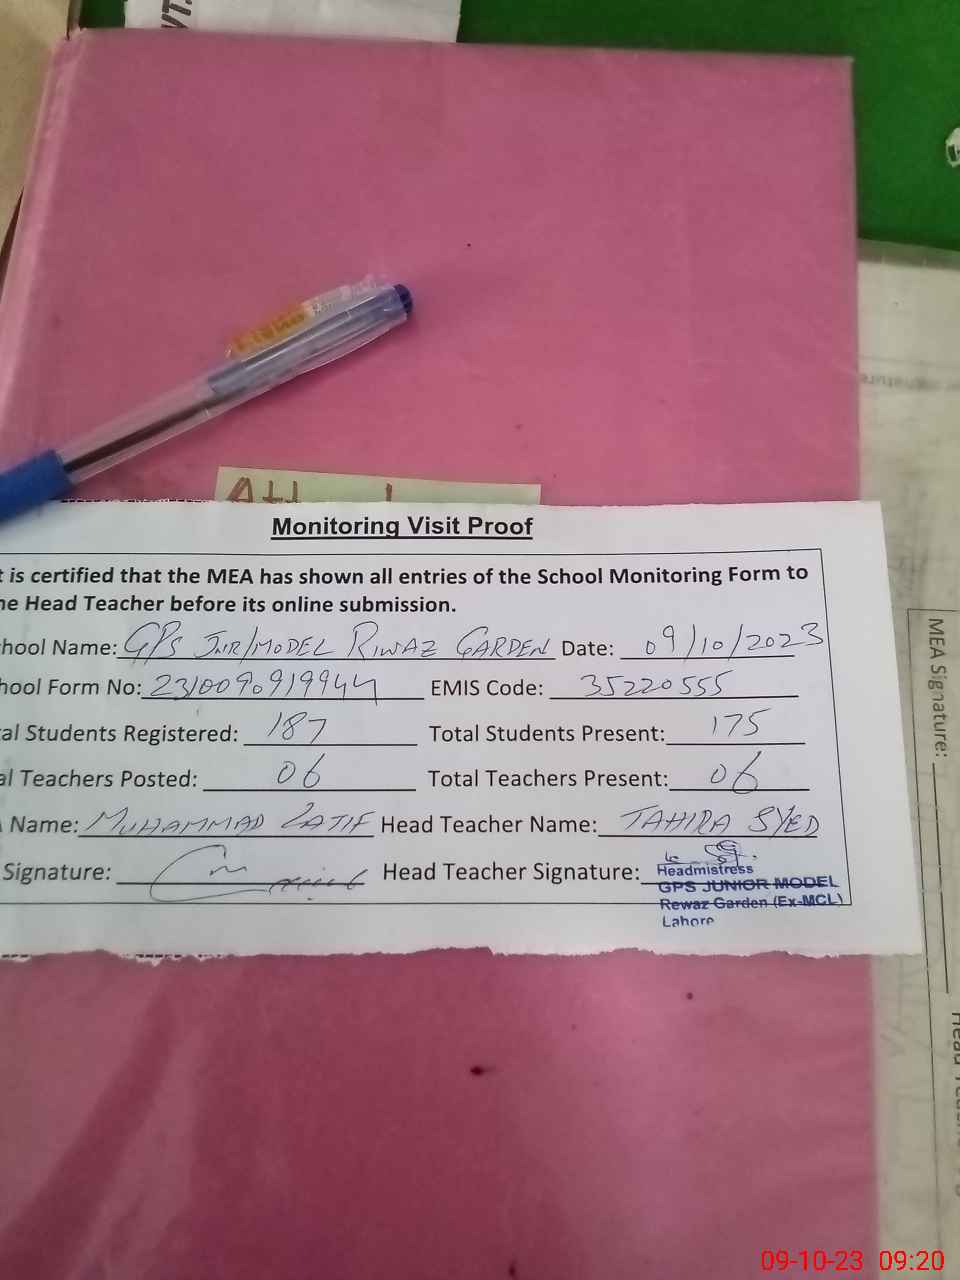 VT.
Att
Monitoring Visit Proof
t is certified that the MEA has shown all entries of the School Monitoring Form to
he Head Teacher before its online submission.
hool Name: GPS JNR/MODEL RIWAZ GARDEN Date: 09/10/2023
hool Form No: 2310090919944 EMIS Code: 35220555
al Students Registered: 187 Total Students Present: 175
al Teachers Posted: 06 Total Teachers Present: 06
Name: MUHAMMAD LATIF Head Teacher Name: TAHIRA SYED
Signature: Head Teacher Signature:
Headmistress
GPS JUNIOR MODEL
Rewaz Garden (Ex-MCL)
Lahore
MEA Signature:
09-10-23 09:20